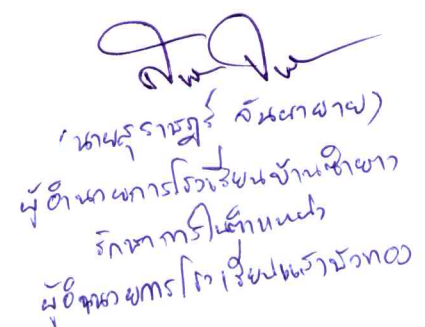 (นายสุราษฎร์
ผู้อำนวยการโรงเรียนบ้านซำยาว
รักษาการในตำแหน่ง
ผู้อำนวยการโรงเรียนเสาบัวทอง